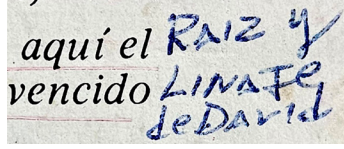 aquí el RAIZ y
vencido LINAJE
de DaviD